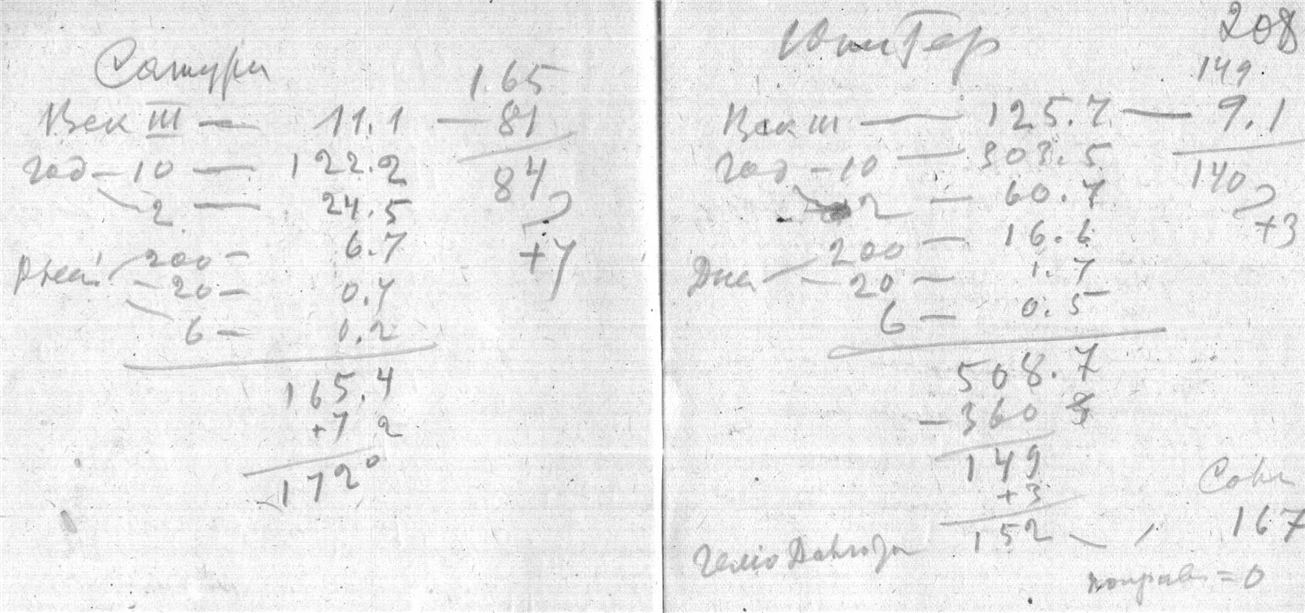 Сатурн
1.65
Век III — 11.1 — 81
год — 10 — 122.2
84
2 — 24.5
+7
дней 200 — 6.7
— 20 — 0.7
6 — 0.2
165.4
+7 2
172°
Юпитер
208
149
Век III — 125.7 — 9.1
год — 10 — 303.5
140
2 — 60.7
+3
200 — 16.6
Дней — 20 — 1.7
6 — 0.5
508.7
— 360
149
+3
152
167
поправ = 0